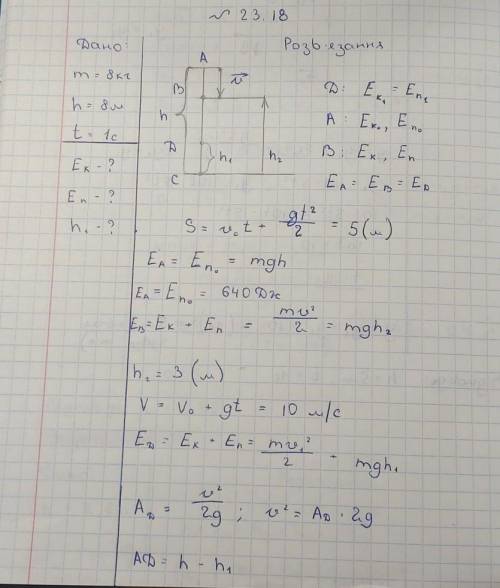 № 23.18
Дано:
m = 8кг
h = 8м
t = 1с
Eк - ?
Eп - ?
h₁ - ?
Розв'язання
A
B
h
D
C
v⃗
h₁
h₂
D: Eк₁ = Eп₁
A: Eк₀, Eп₀
B: Eк, Eп
E_A = E_B = E_D
S = v₀t + gt²/2 = 5(м)
E_A = Eп₀ = mgh
E_A = Eп₀ = 640 Дж
E_B = Eк + Eп = mv²/2 = mgh₂
h₂ = 3 (м)
V = V₀ + gt = 10 м/с
E_D = Eк + Eп = mv₁²/2 + mgh₁
A_D = v²/2g ; v² = A_D · 2g
AD = h - h₁